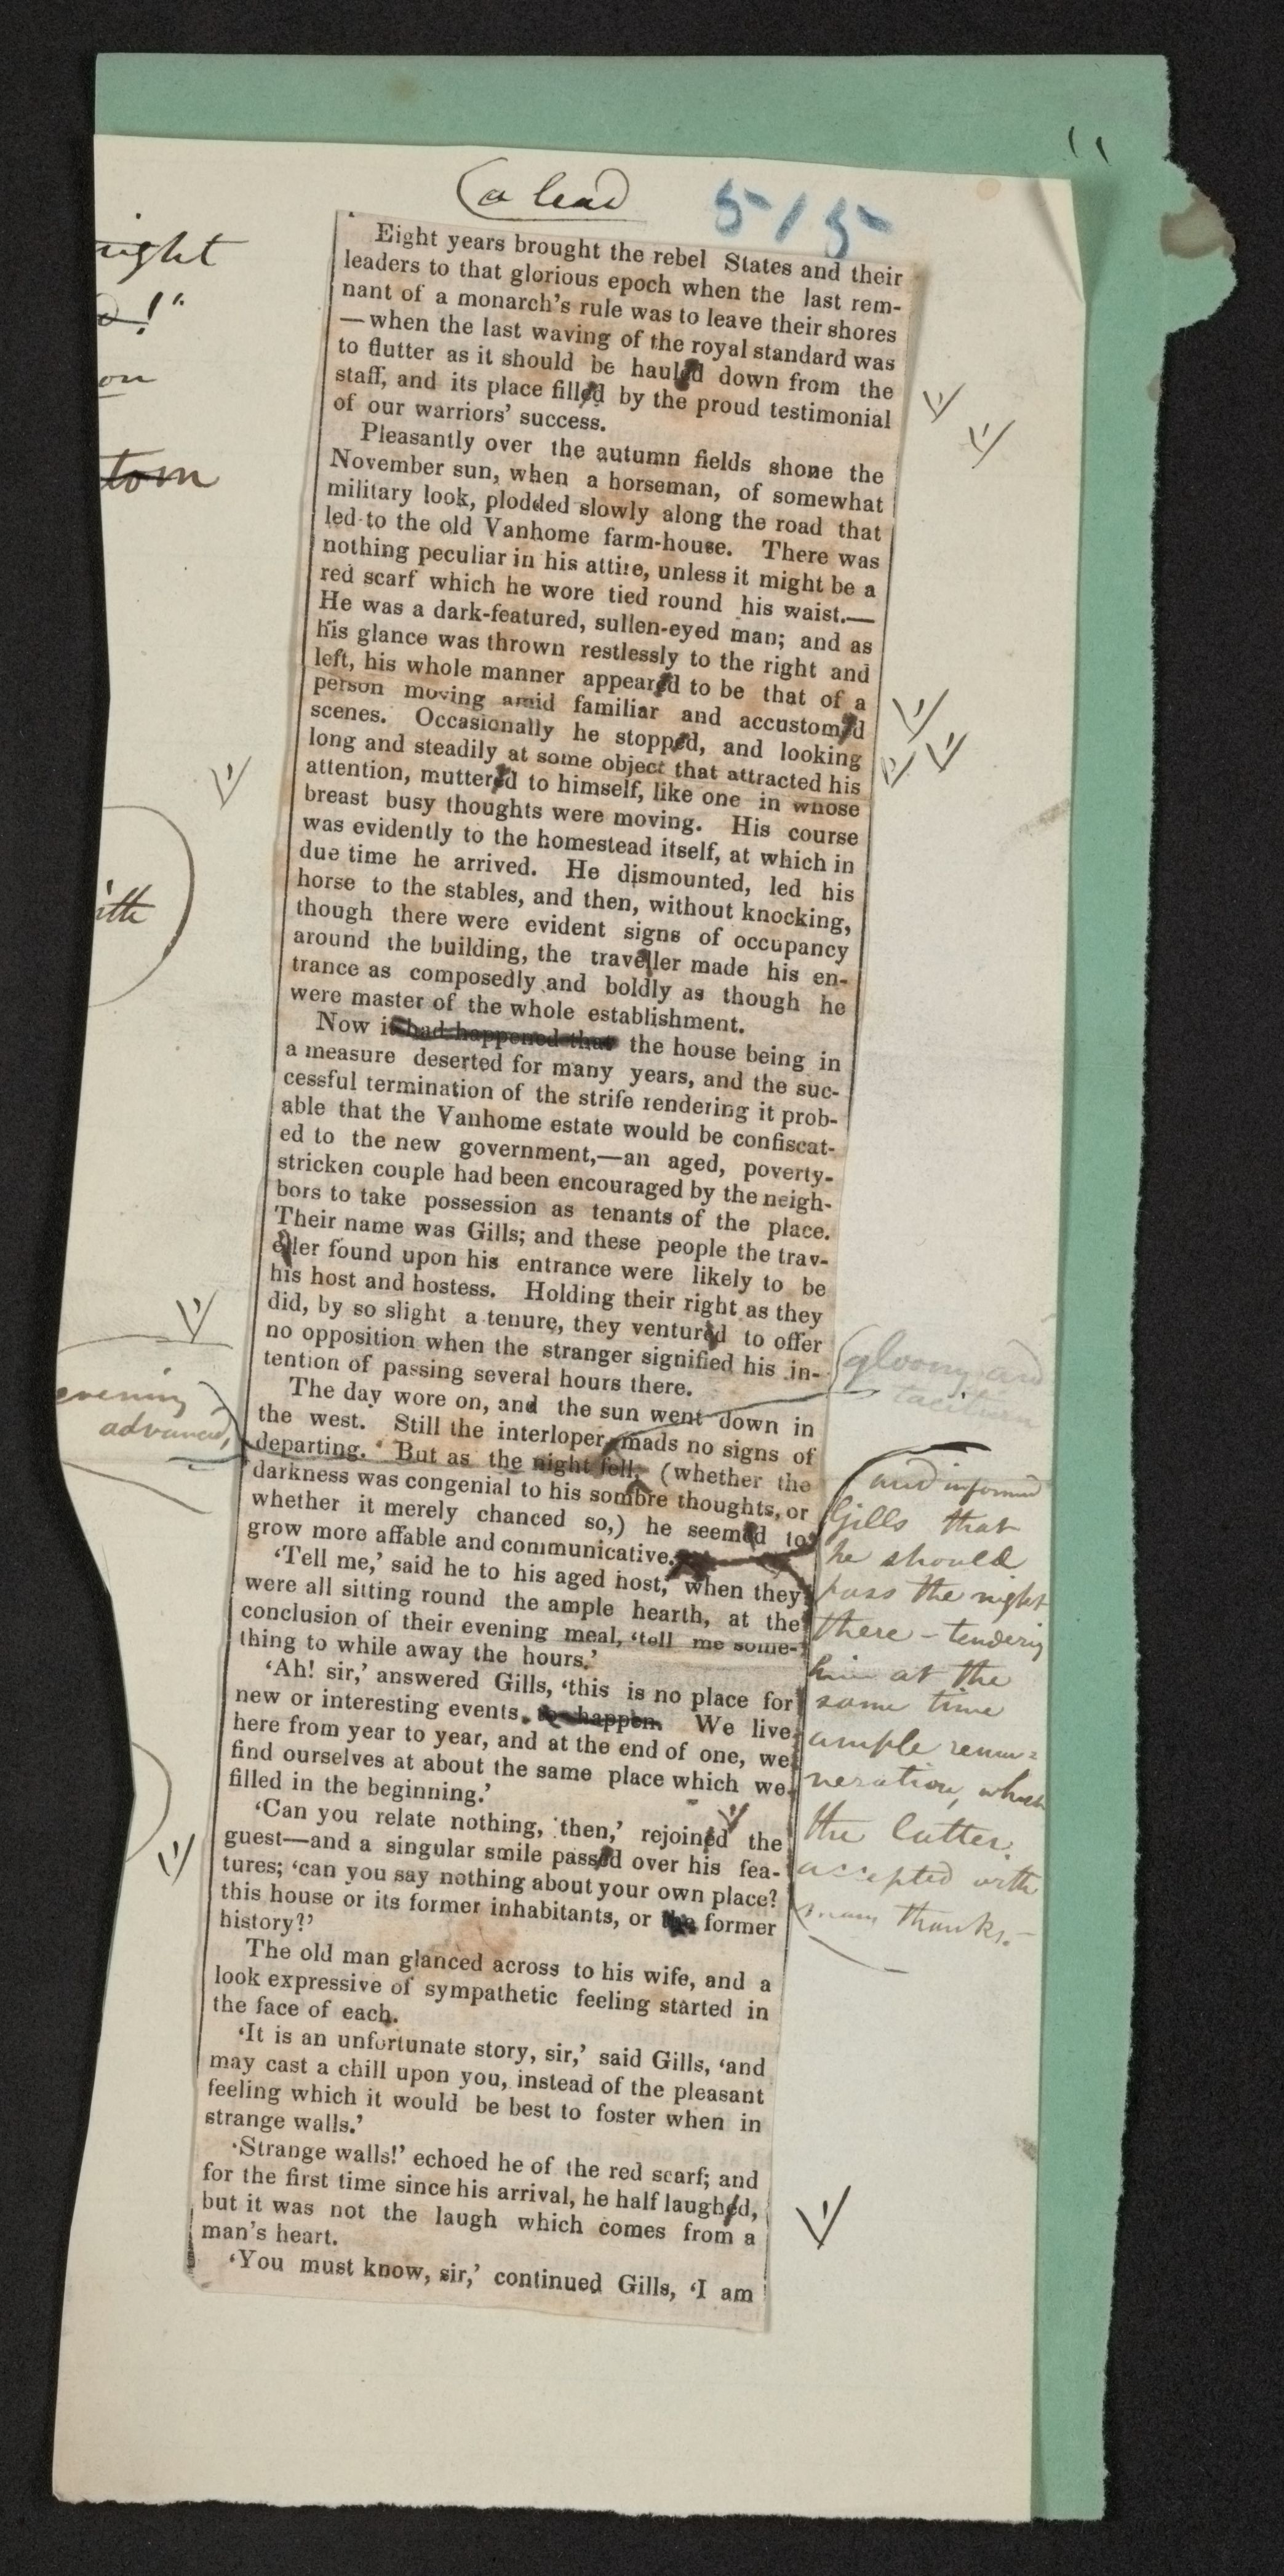 a lead
515
ight
!"
on
tom
Eight years brought the rebel States and their
leaders to that glorious epoch when the last rem-
nant of a monarch's rule was to leave their shores
—when the last waving of the royal standard was
to flutter as it should be hauled down from the
staff, and its place filled by the proud testimonial
of our warriors' success.
Pleasantly over the autumn fields shone the
November sun, when a horseman, of somewhat
military look, plodded slowly along the road that
led to the old Vanhome farm-house. There was
nothing peculiar in his attire, unless it might be a
red scarf which he wore tied round his waist.—
He was a dark-featured, sullen-eyed man; and as
his glance was thrown restlessly to the right and
left, his whole manner appeared to be that of a
person moving amid familiar and accustomed
scenes. Occasionally he stopped, and looking
long and steadily at some object that attracted his
attention, muttered to himself, like one in whose
breast busy thoughts were moving. His course
was evidently to the homestead itself, at which in
due time he arrived. He dismounted, led his
horse to the stables, and then, without knocking,
though there were evident signs of occupancy
around the building, the traveller made his en-
trance as composedly and boldly as though he
were master of the whole establishment.
Now it had happened that the house being in
a measure deserted for many years, and the suc-
cessful termination of the strife rendering it prob-
able that the Vanhome estate would be confiscat-
ed to the new government,—an aged, poverty-
stricken couple had been encouraged by the neigh-
bors to take possession as tenants of the place.
Their name was Gills; and these people the trav-
eller found upon his entrance were likely to be
his host and hostess. Holding their right as they
did, by so slight a tenure, they ventured to offer
no opposition when the stranger signified his in-
tention of passing several hours there.
The day wore on, and the sun went down in
the west. Still the interloper, mads no signs of
departing. But as the night fell, (whether the
darkness was congenial to his sombre thoughts, or
whether it merely chanced so,) he seemed to
grow more affable and communicative.
'Tell me,' said he to his aged host, when they
were all sitting round the ample hearth, at the
conclusion of their evening meal, 'tell me some-
thing to while away the hours.'
'Ah! sir,' answered Gills, 'this is no place for
new or interesting events. to happen. We live
here from year to year, and at the end of one, we
find ourselves at about the same place which we
filled in the beginning.'
'Can you relate nothing, then,' rejoined the
guest—and a singular smile passed over his fea-
tures; 'can you say nothing about your own place?
this house or its former inhabitants, or the former
history?'
The old man glanced across to his wife, and a
look expressive of sympathetic feeling started in
the face of each.
'It is an unfortunate story, sir,' said Gills, 'and
may cast a chill upon you, instead of the pleasant
feeling which it would be best to foster when in
strange walls.'
'Strange walls!' echoed he of the red scarf; and
for the first time since his arrival, he half laughed,
but it was not the laugh which comes from a
man's heart.
'You must know, sir,' continued Gills, 'I am
evening
advanced,
gloomy and
taciturn
and informed
Gills that
he should
pass the night
there – tendering
him at the
same time
ample remu=
neration, which
the latter
accepted with
many thanks.–